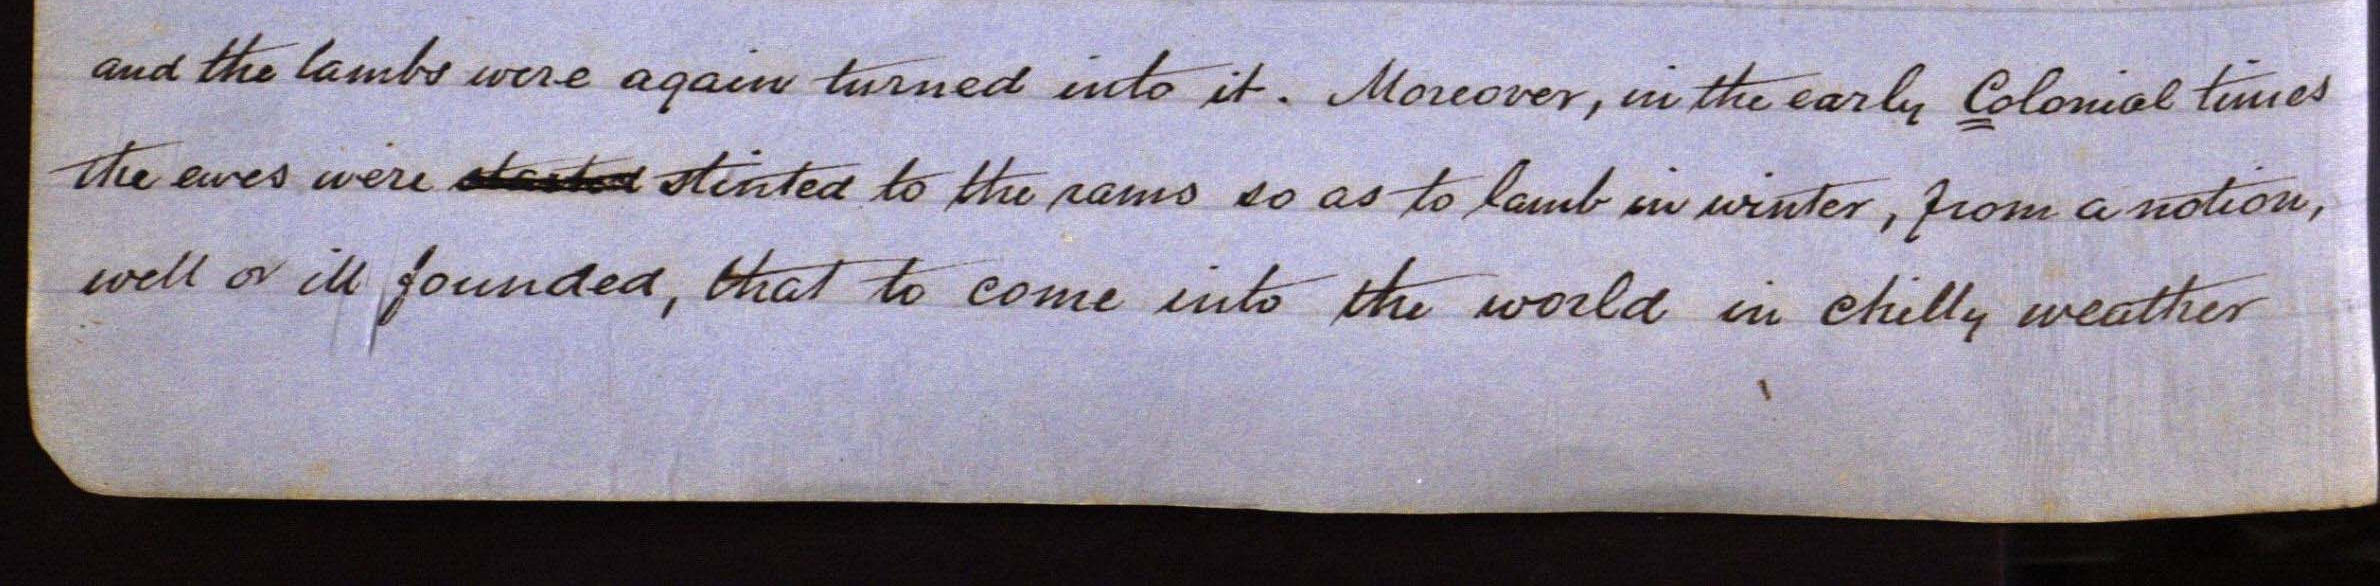 and the lambs were again turned into it. Moreover, in the early Colonial times
the ewes were started stinted to the rams so as to lamb in winter, from a notion,
well or ill founded, that to come into the world in chilly weather